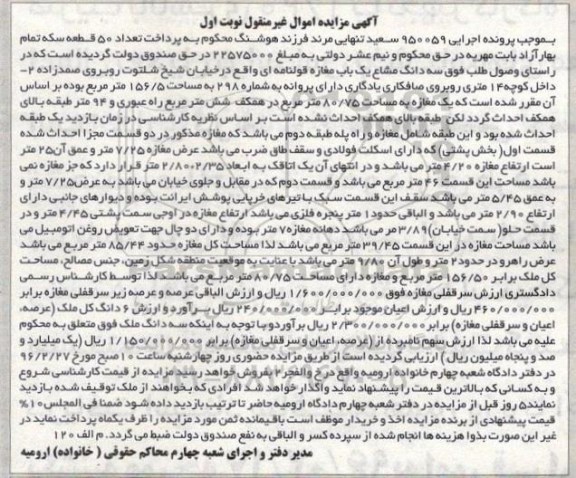 آگهی مزایده اموال غیرمنقول نوبت اول
بموجب پرونده اجرایی ۹۵۰۰۵۹ سعید تنهایی مرند فرزند هوشنگ محکوم به پرداخت تعداد ۵۰ قطعه سکه تمام
بهار آزاد بابت مهریه در حق محکوم و نیم عشر دولتی به مبلغ ۲۲۵۷۵۰۰۰ در حق صندوق دولت گردیده است که در
راستای وصول طلب فوق سه دانگ مشاع یک باب مغازه قولنامه ای واقع در خیابان شیخ شلتوت روبروی صمدزاده ۲-
داخل کوچه ۱۴ متری روبروی صافکاری یادگاری دارای پروانه به شماره ۲۹۸ به مساحت ۱۵۶/۵ متر مربع بوده بر اساس
آن مقرر شده است که یک مغازه به مساحت ۸۰/۷۵ متر مربع در همکف شش متر مربع راه عبوری و ۹۴ متر طبقه بالای
همکف احداث گردد لکن طبقه بالای همکف احداث نشده است بر اساس نظریه کارشناسی در زمان بازدید یک طبقه
احداث شده بود و این طبقه شامل مغازه و راه پله طبقه دوم می باشد که مغازه مذکور در دو قسمت مجزا احداث شده
قسمت اول( بخش پشتی) که دارای اسکلت فولادی و سقف طاق ضرب می باشد عرض مغازه ۷/۲۵ متر و عمق آن ۲۵ متر
است ارتفاع مغازه ۴/۲۰ متر می باشد و در انتهای آن یک اتاقک به ابعاد ۲/۸۰۰۲/۳۵ متر قرار دارد که جز مغازه نمی
باشد مساحت این قسمت ۴۶ متر مربع می باشد و قسمت دوم که در مقابل و جلوی خیابان می باشد به عرض ۷/۲۵ متر و
به عمق ۵/۴۵ متر می باشد سقف این قسمت سبک با تیرهای خرپایی پوشش ایرانت بوده و دیوارهای جانبی دارای
ارتفاع ۲/۹۰ متر می باشد و الباقی حدود ۱ متر پنجره فلزی می باشد ارتفاع مغازه در اوجی سمت پشتی ۴/۴۵ متر و در
قسمت جلو( سمت خیابان) ۳/۸۹ مر می باشد دهانه مغازه ۷ متر بوده و دارای دو چال جهت تعویض روغن اتومبیل می
باشد مساحت مغازه در این قسمت ۳۹/۴۵ متر مربع می باشد لذا مساحت کل مغازه حدود ۸۵/۴۴ متر مربع می باشد
عرض راهرو در حدود ۲ متر و طول آن ۹/۸۰ متر می باشد با عنایت به موقعیت منطقه شکل زمین، جنس مصالح، مساحت
کل ملک برابر ۱۵۶/۵۰ متر مربع و مغازه دارای مساحت ۸۰/۷۵ متر مربع می باشد لذا توسط کارشناس رسمی
دادگستری ارزش سرقفلی مغازه فوق ۱/۶۰۰/۰۰۰/۰۰۰ ریال و ارزش الباقی عرصه و عرصه زیر سرقفلی مغازه برابر
۴۶۰/۰۰۰/۰۰۰ ریال و ارزش اعیان موجود برابر ۲۴۰/۰۰۰/۰۰۰ ریال برآورد و ارزش ۶ دانگ کل ملک (عرصه،
اعیان و سرقفلی مغازه) برابر ۲/۳۰۰/۰۰۰/۰۰۰ ریال برآورد با توجه به اینکه سه دانگ ملک فوق متعلق به محکوم
علیه می باشد لذا ارزش سهم نامبرده از (عرصه، اعیان و سرقفلی مغازه) برابر ۱/۱۵۰/۰۰۰/۰۰۰ ریال (یک میلیارد و
صد و پنجاه میلیون ریال ) ارزیابی گردیده است از طریق مزایده حضوری روز چهارشنبه ساعت ۱۰ صبح مورخ ۹۶/۲/۲۷
در دفتر دادگاه شعبه چهارم خانواده ارومیه واقع در خ والفجر ۲ بفروش خواهد رسید مزایده از قیمت کارشناسی شروع
و به کسانی که بالاترین قیمت را پیشنهاد نماید واگذار خواهد شد افرادی که بخواهند از ملک توقیف شده بازدید
نمایند ۵ روز قبل از مزایده در دفتر شعبه چهارم دادگاه ارومیه حاضر تا ترتیب بازدید داده شود ضمنا فی المجلس ۱۰%
قیمت پیشنهادی از برنده مزایده اخذ و خریدار موظف است باقیمانده ثمن مورد مزایده را ظرف یکماه پرداخت نماید در
غیر این صورت بدوا هزینه ها انجام شده از سپرده کسر و الباقی به نفع صندوق دولت ضبط می گردد. م الف ۱۲۰
مدیر دفتر و اجرای شعبه چهارم محاکم حقوقی ( خانواده) ارومیه